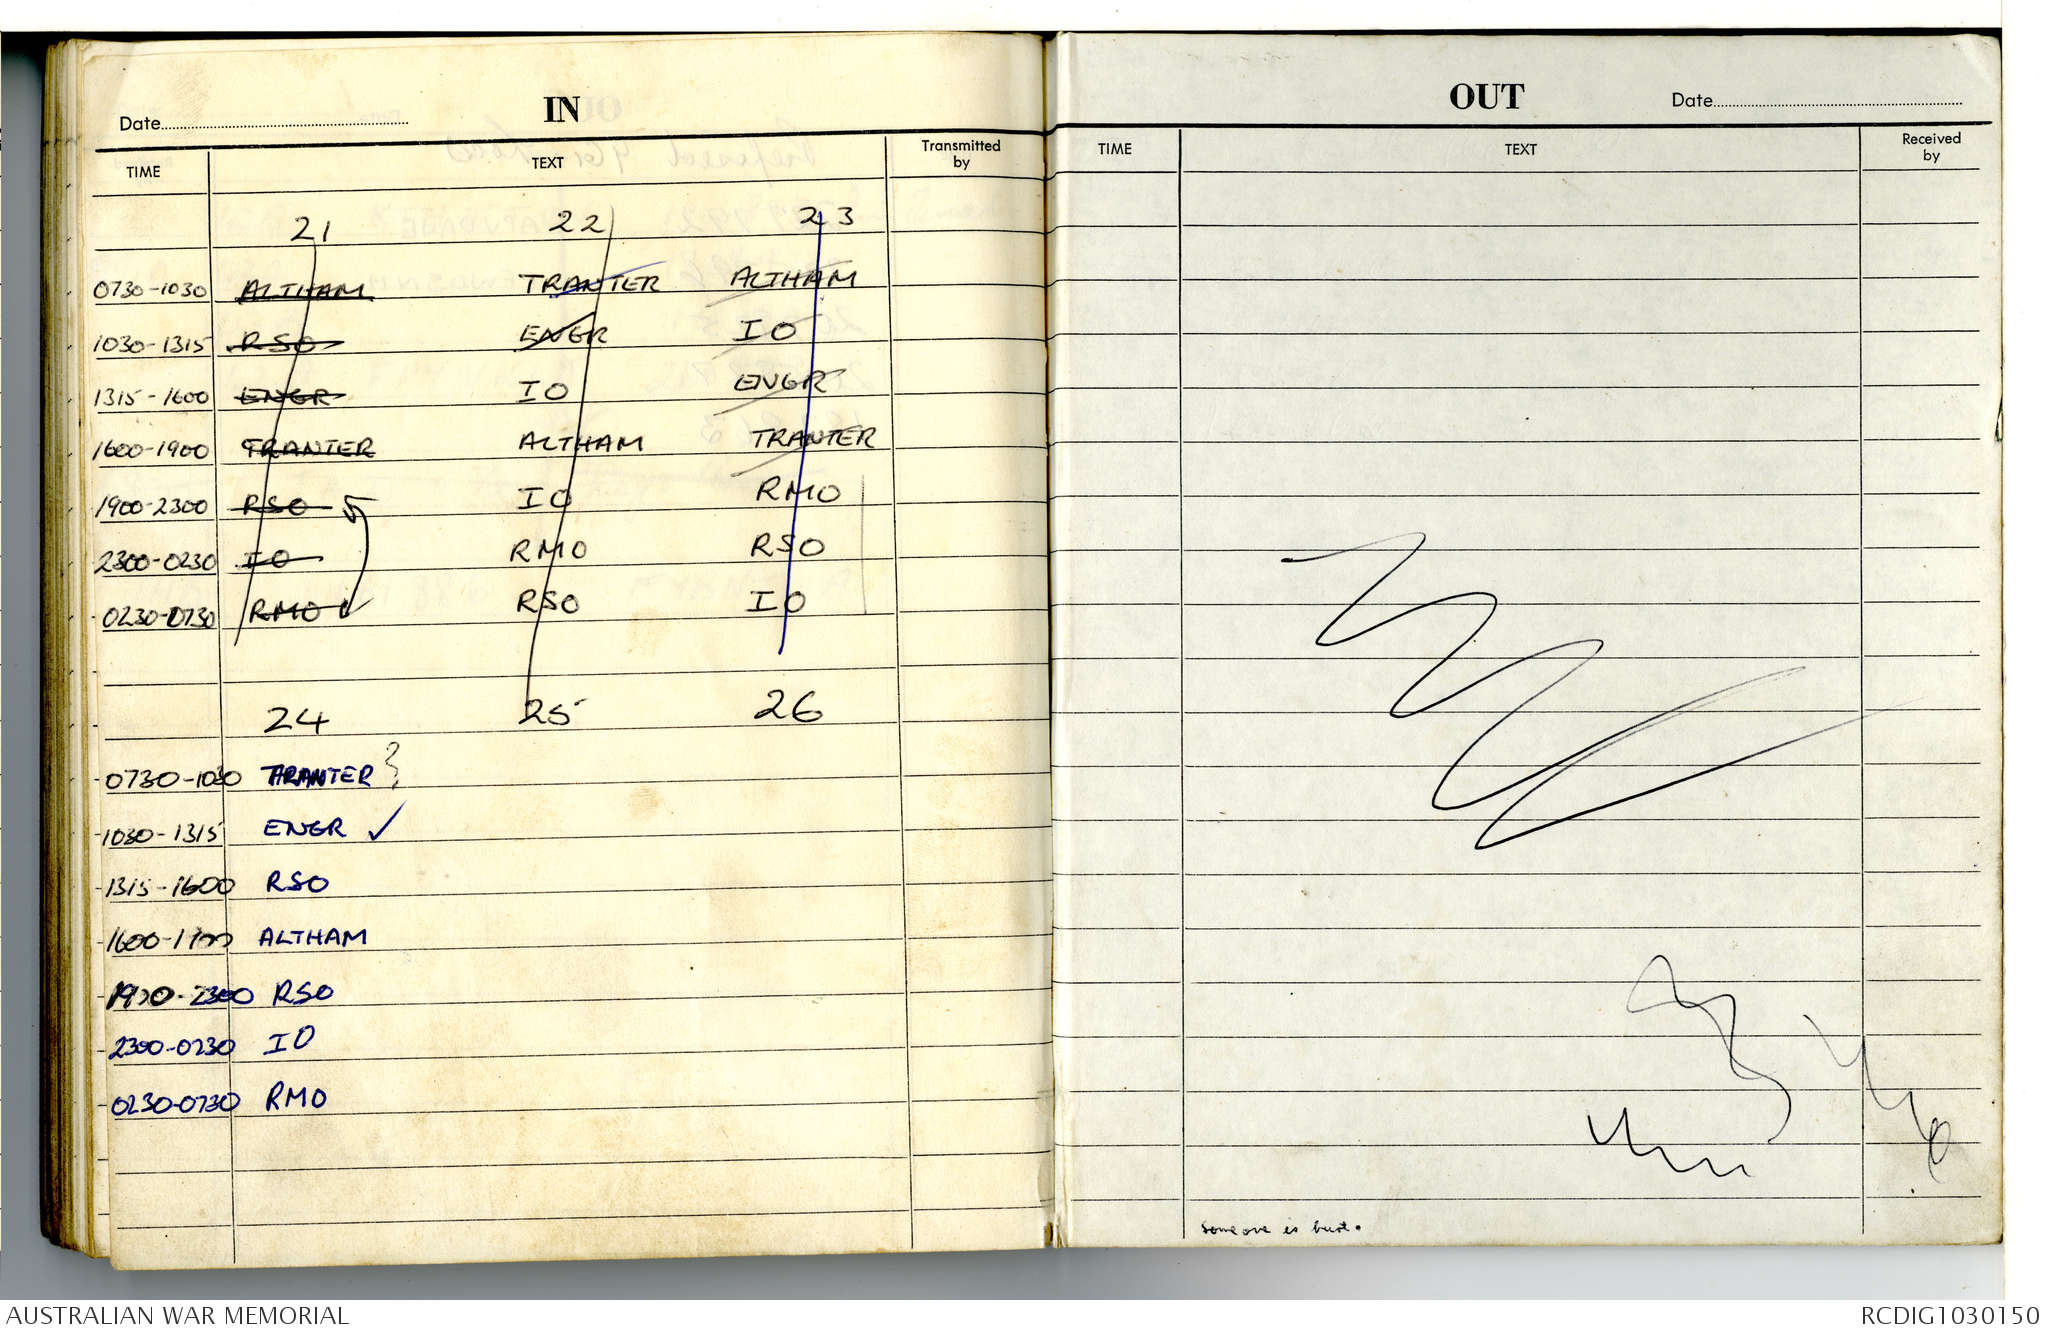 IN
Date
TIME TEXT Transmitted by
21 22 23
0730-1030 ALTHAM TRANTER ALTHAM
1030-1315 RSO ENGR IO
1315-1600 ENGR IO ENGR
1600-1900 TRANTER ALTHAM TRANTER
1900-2300 RSO IO RMO
2300-0230 IO RMO RSO
0230-0730 RMO RSO IO
24 25 26
0730-1030 TRANTER
1030-1315 ENGR ✓
1315-1600 RSO
1600-1900 ALTHAM
1900-2300 RSO
2300-0230 IO
0230-0730 RMO
OUT
Date
TIME TEXT Received by
Someone is
AUSTRALIAN WAR MEMORIAL
RCDIG1030150